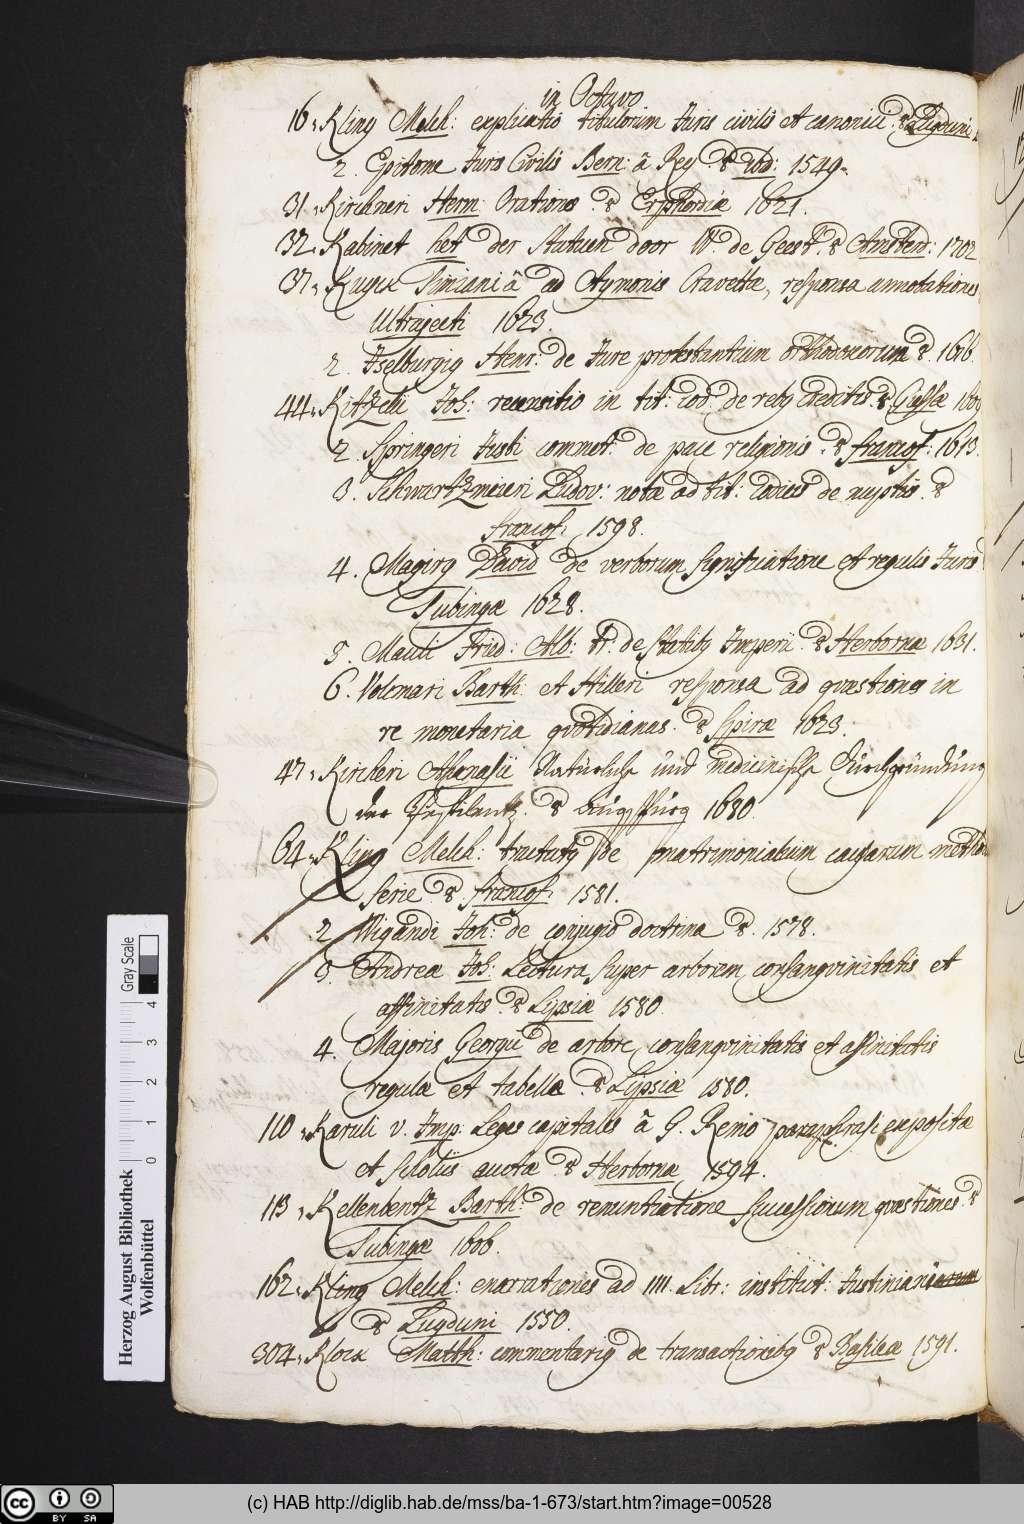 in Octavo
16. Kling Melch: explicatio titulorum Juris civilis et canonici. 8. Lugduni
2. Epitome Juris Civilis Bern: à Rey 8. 1549.
31. Kirchneri Herm Orationes 8. Erphordiæ 1621.
32. Kabinet het der Statuen door W. de Geest. 8. Amsterd: 1702
37. Kuyck Tinziani à ad Aymonis Cravettæ, responsa annotationes
Ultrajecti 1623.
2. Iselburgig Henr: de Jure protestantium orthodoxorum 8. 1616.
44. Kitzelii Joh: recensitio in tit: cod. de reb9 creditis 8. Gissæ
2. Springeri Justi comment. de pace religionis. 8. francof: 1613.
3. Schwartzmeieri Ludov: notæ ad tit: codicis de nuptiis. 8
francof: 1598.
4. Magirg David de verborum significatione et regulis Juris
Tubingæ 1628.
5. Mauli Fried: Alb: tr: de statib9 Imperii. 8 Herbornæ 1631.
6. Volcmari Barth: et Hilleri responsa ad qvæstiones in
re monetaria qvotidianas. 8 Spiræ 1623.
47. Kircheri Athanasii Natürliche und medicinische Durchgründung
der Pestilentz. 8 Augspurg 1680.
64. Kling Melch: tractat9 de matrimonialium causarum method
serie 8 francof. 1581.
2. Wigandi Joh: de conjugio doctrina 8. 1578.
3. Andreæ Joh: Lectura super arborem consangvinitatis et
affinitatis 8 Lipsiæ 1580.
4. Majoris Georgii de arbore consangvinitatis et affinitatis
regulæ et tabellæ 8 Lypsiæ 1580.
110. Karuli v. Imp: Leges capitales à G. Remo paraphrasi expositæ
et scholiis auctæ 8 Herbornæ 1594.
113. Kellenbentz Barth: de renuntiatione successiorum qvæstiones. 8
Tubingæ 1606.
162. Kling Melch: enarrationes ad IIII. Libr: institut: Justiniani
8 Lugduni 1550.
304. Klock Matth: commentarig de transactionib9 8 Basileæ 1591.
Gray Scale
4
3
2
1
0
Herzog August Bibliothek
Wolfenbüttel
cc BY SA
(c) HAB http://diglib.hab.de/mss/ba-1-673/start.htm?image=00528